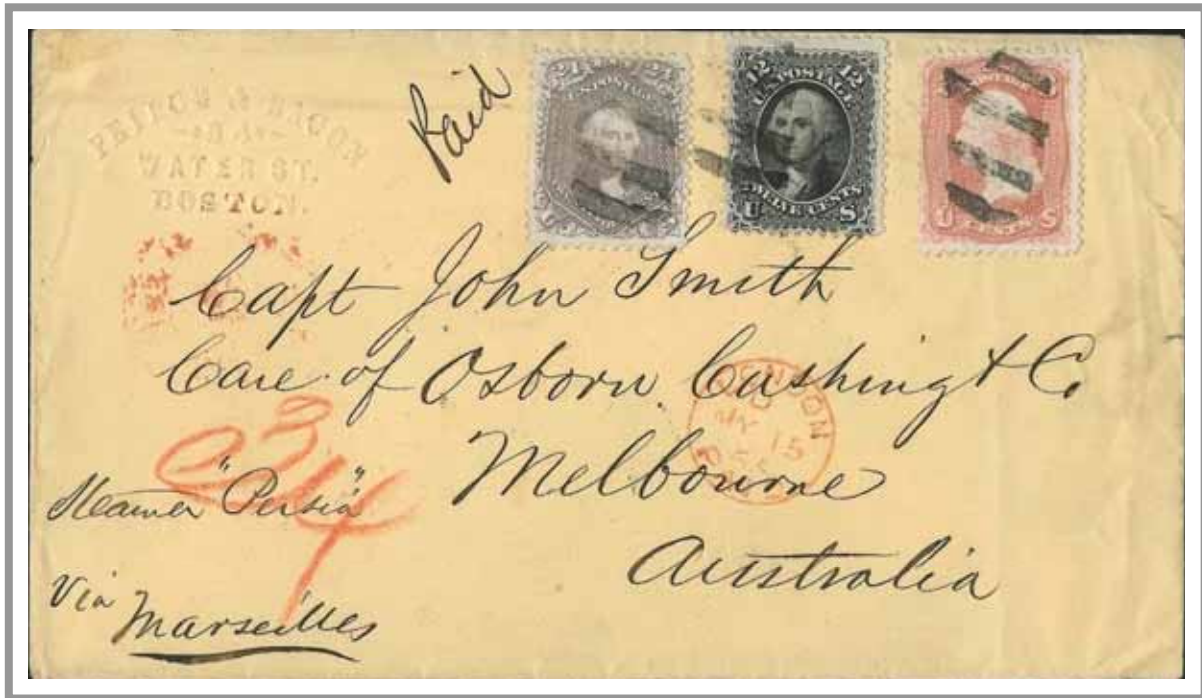 & BACON
WATER ST.
BOSTON.
Paid
24 24
12 12
U.S. POSTAGE
TWELVE CENTS
U S
U S
Capt John Smith
Care of Osborn, Cushing & Co
Melbourne
Australia
LONDON
MY 15
34
Steamer "Persia"
Via Marseilles